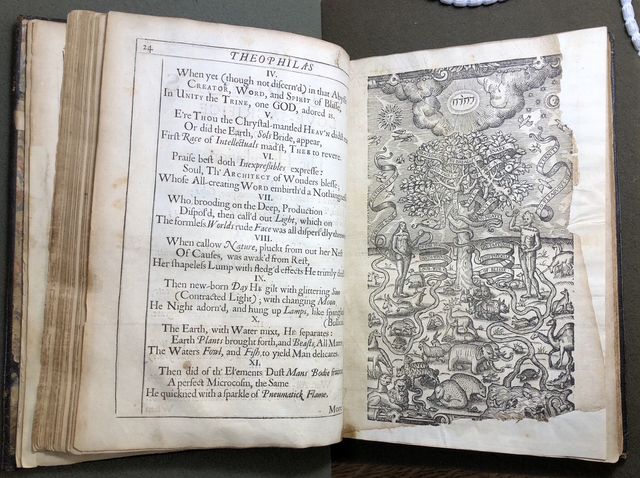 24
THEOPHILAS
IV.
When yet (though not discern'd) in that Abysse
CREATOR, WORD, and SPIRIT of Blisse,
In UNITY the TRINE, one GOD, adored is.
V.
E're THOU the Chrystal-mantled HEAV'N didst
Or did the Earth, Sols Bride, appear,
First Race of Intellectuals mad'st, THEE to revere.
VI.
Praise best doth Inexpressibles expresse:
Soul, Th' ARCHITECT of Wonders blesse;
Whose All-creating WORD embirth'd a Nothingness
VII.
Who, brooding on the Deep, Production
Dispos'd, then call'd out Light, which on
The formless Worlds rude Face was all dispers'd
VIII.
When callow Nature, pluckt from out her Nest
Of Causes, was awak'd from Rest,
Her shapeless Lump with fledg'd effects He trimly
IX.
Then new-born Day HE gilt with glittering Sun
(Contracted Light); with changing Moon
He Night adorn'd, and hung up Lamps, like
X.
The Earth, with Water mixt, HE separates:
Earth Plants brought forth, and Beasts, All
The Waters Fowl, and Fish, to yield Man delicates.
XI.
Then did of th' El'ements Dust Mans Bodie
A perfect Microcosm, the Same
He quickned with a sparkle of Pneumatick Flame.
More
יהוה